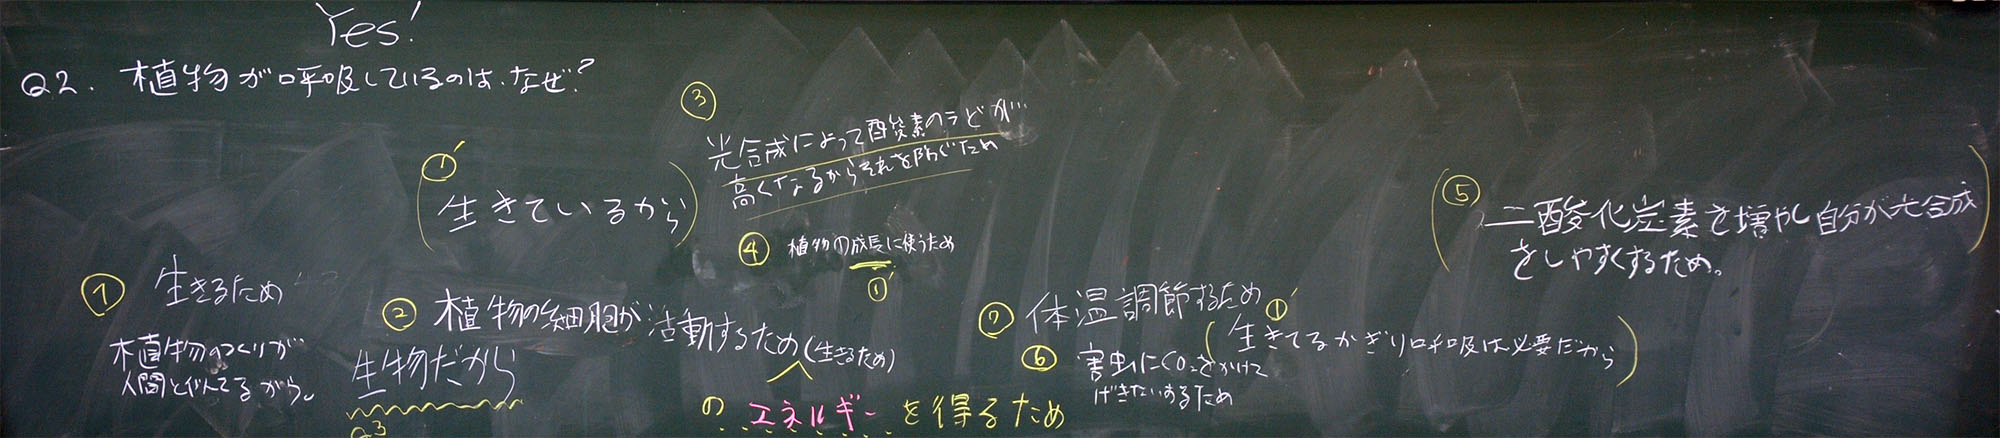 Yes!
Q2. 植物が呼吸しているのは、なぜ?
①'
(生きているから)
③
光合成によって酸素のうどが…
高くなるからそれを防ぐため
④ 植物の成長に使うため
①'
① 生きるため
植物のつくりが
人間と似てるから。
② 植物の細胞が活動するため(生きるため)
のエネルギーを得るため
生物だから
Q3
⑦ 体温調節するため
①'
(生きてるかぎり呼吸は必要だから)
⑥ 害虫にCO₂をかけて
げきたいするため
⑤
(二酸化炭素を増やし自分が光合成
をしやすくするため。)